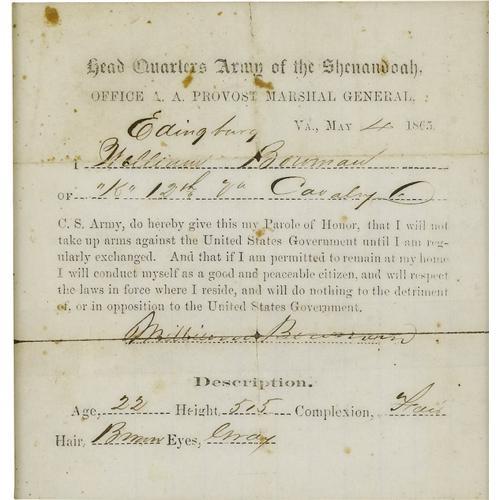 Head Quarters Army of the Shenandoah,
OFFICE A. A. PROVOST MARSHAL GENERAL,
Edingburg VA., MAY 4 1865.
I William Bowman
OF "K" 12th Va Cavalry
C. S. Army, do hereby give this my Parole of Honor, that I will not
take up arms against the United States Government until I am reg-
ularly exchanged. And that if I am permitted to remain at my home
I will conduct myself as a good and peaceable citizen, and will respect
the laws in force where I reside, and will do nothing to the detriment
of, or in opposition to the United States Government.
William Bowman
Description.
Age, 22 Height, 5.5 Complexion, Fair
Hair, Brown Eyes, Gray